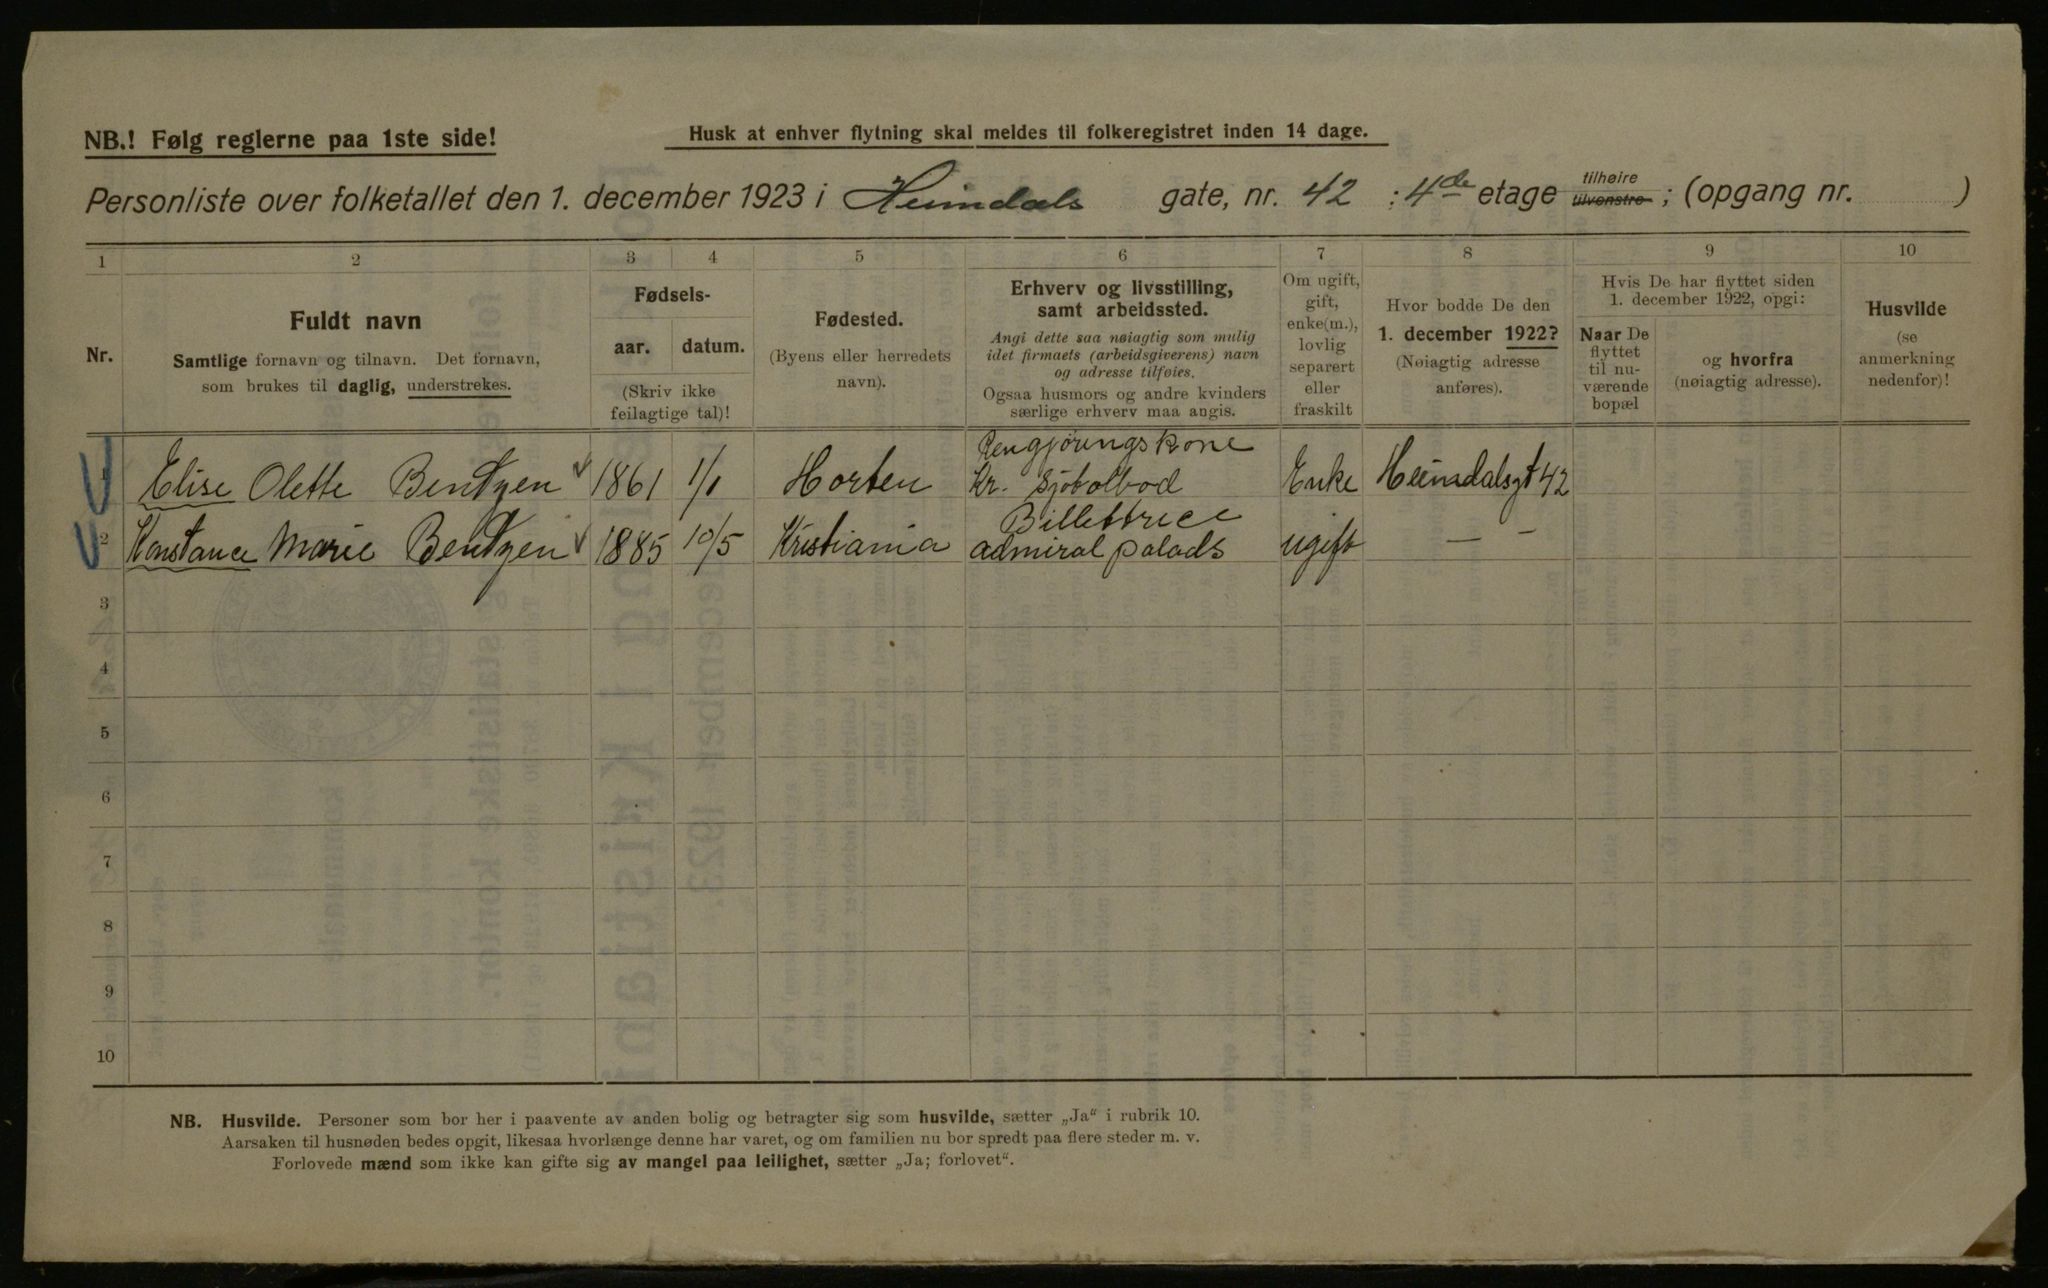 NB.! Følg reglerne paa 1ste side!
Husk at enhver flytning skal meldes til folkeregistret inden 14 dage.
Personliste over folketallet den 1. december 1923 i Heimdals gate, nr. 42 : 4de etage tilhøire tilvenstre ; (opgang nr. )
1 2 3 4 5 6 7 8 9 10
Nr.
Fuldt navn
Samtlige fornavn og tilnavn. Det fornavn,
som brukes til daglig, understrekes.
Fødsels-
aar. datum.
(Skriv ikke
feilagtige tal)!
Fødested.
(Byens eller herredets
navn).
Erhverv og livsstilling,
samt arbeidssted.
Angi dette saa nøiagtig som mulig
idet firmaets (arbeidsgiverens) navn
og adresse tilføies.
Ogsaa husmors og andre kvinders
særlige erhverv maa angis.
Om ugift,
gift,
enke(m.),
lovlig
separert
eller
fraskilt
Hvor bodde De den
1. december 1922?
(Nøiagtig adresse
anføres).
Hvis De har flyttet siden
1. december 1922, opgi:
Naar De
flyttet
til nu-
værende
bopæl
og hvorfra
(nøiagtig adresse).
Husvilde
(se
anmerkning
nedenfor)!
Rengjøringskone
1 Elise Olette Bentzen 1861 1/1 Horten Kr. Enke Heimdalsgt 42
Billettrice
2 Konstance Marie Bentzen 1885 10/5 Kristiania admiral palads ugift — —
3
4
5
6
7
8
9
10
NB. Husvilde. Personer som bor her i paavente av anden bolig og betragter sig som husvilde, sætter „Ja“ i rubrik 10.
Aarsaken til husnøden bedes opgit, likesaa hvorlænge denne har varet, og om familien nu bor spredt paa flere steder m. v.
Forlovede mænd som ikke kan gifte sig av mangel paa leilighet, sætter „Ja; forlovet“.